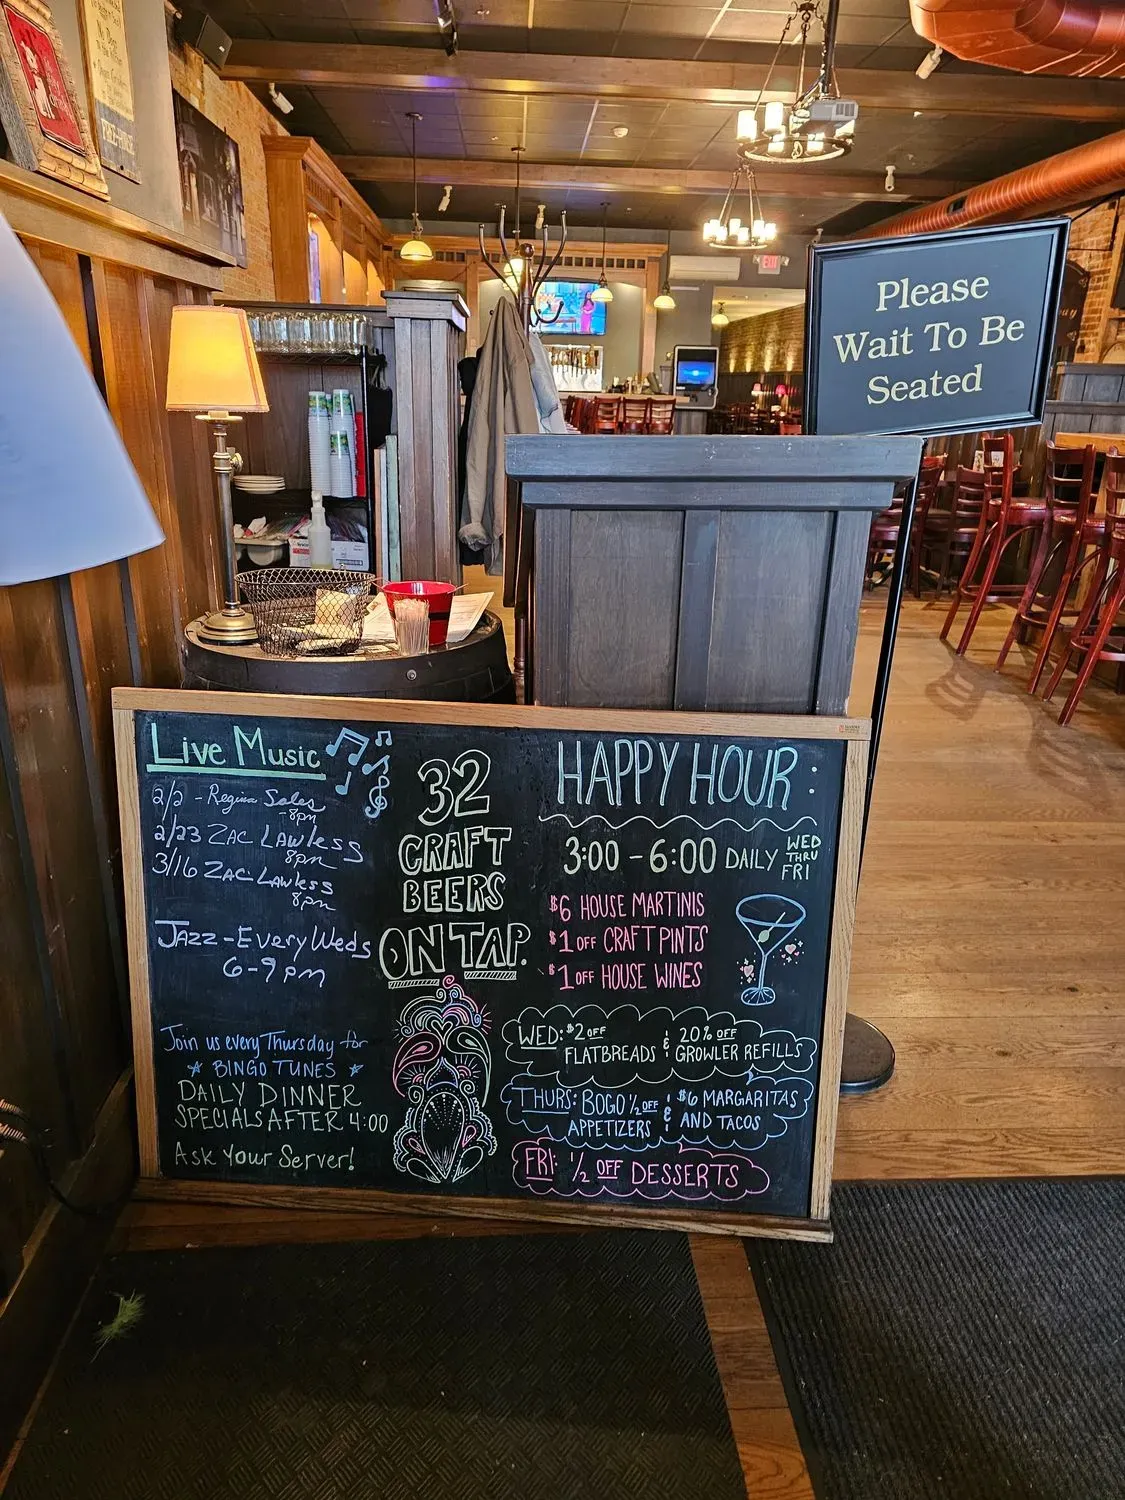 Please
Wait To Be
Seated
EXIT
FREE HOUSE
Live Music
2/2 - Regina Sales
-8pm
2/23 Zac Lawless
8pm
3/16 Zac Lawless
8pm
Jazz - Every Weds
6-9pm
Join us every Thursday for
BINGO TUNES
DAILY DINNER
SPECIALS AFTER 4:00
Ask Your Server!
32
CRAFT
BEERS
ON TAP.
HAPPY HOUR:
3:00 - 6:00 DAILY WED
THRU
FRI
$6 HOUSE MARTINIS
$1 OFF CRAFT PINTS
$1 OFF HOUSE WINES
WED: $2 OFF & 20% OFF
FLATBREADS GROWLER REFILLS
THURS: BOGO 1/2 OFF & $6 MARGARITAS
APPETIZERS AND TACOS
FRI: 1/2 OFF DESSERTS